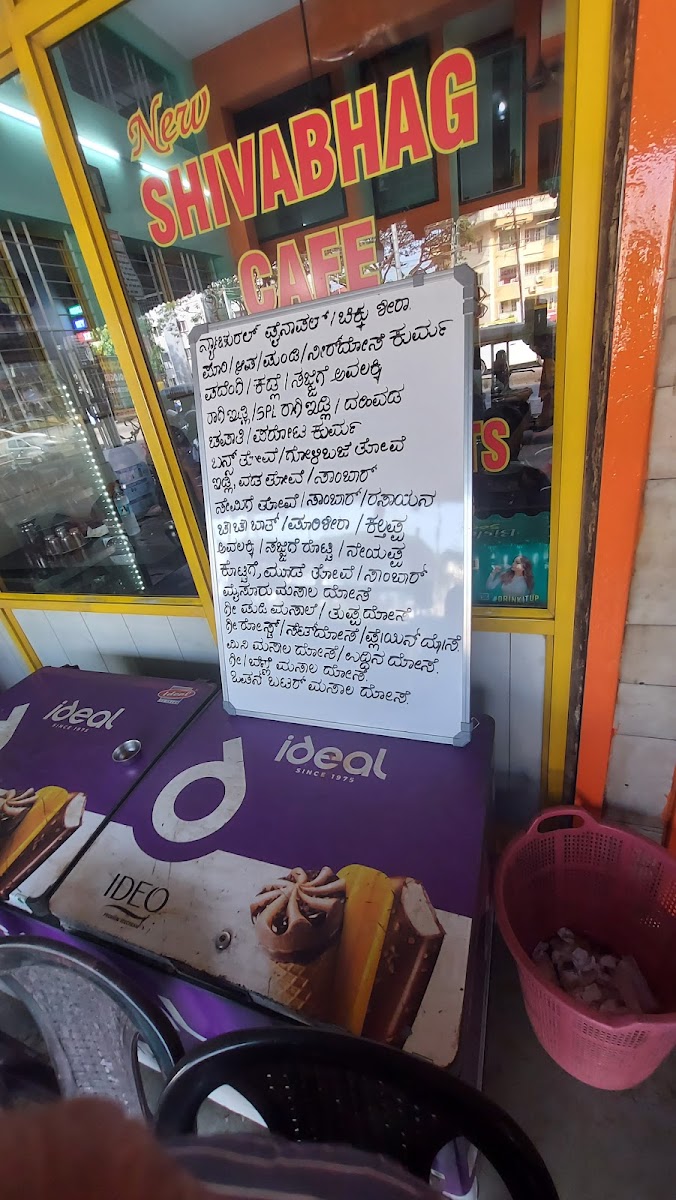 New
SHIVABHAG
CAFE
ನ್ಯಾಚುರಲ್ ಪೈನಾಪಲ್ / ಚಿಕ್ಕು ಶೀರಾ
ಪೂರಿ / ಆಪ / ಮಂಡಿ / ನೀರ್‌ದೋಸೆ ಕುರ್ಮ
ಪದೆಂಗಿ / ಕಡ್ಲೆ / ಸಜ್ಜಿಗೆ ಅವಲಕ್ಕಿ
ರಾಗಿ ಇಡ್ಲಿ / SPL ರಾಗಿ ಇಡ್ಲಿ / ದಹಿವಡ
ಚಪಾತಿ / ಪರೋಟ ಕುರ್ಮ
ಬನ್ಸ್ ತೋವೆ / ಗೋಳಿಬಜೆ ತೋವೆ
ಇಡ್ಲಿ, ವಡ ತೋವೆ / ಸಾಂಬಾರ್
ಸೇಮಿಗೆ ತೋವೆ / ಸಾಂಬಾರ್ / ರಸಾಯನ
ಚೌ ಚೌ ಬಾತ್ / ಪೂರಿ ಶೀರಾ / ಕಲ್ತಪ್ಪ
ಅವಲಕ್ಕಿ / ಸಜ್ಜಿಗೆ ರೊಟ್ಟಿ / ನೇಯಪ್ಪ
ಕೊಟ್ಟಿಗೆ, ಮೂಡೆ ತೋವೆ / ಸಾಂಬಾರ್
ಮೈಸೂರು ಮಸಾಲ ದೋಸೆ
ಗೀ ಪುಡಿ ಮಸಾಲೆ / ತುಪ್ಪ ದೋಸೆ
ಗೀ ರೋಸ್ಟ್ / ಸೆಟ್‌ದೋಸೆ / ಪ್ಲೇಯಿನ್ ದೋಸೆ.
ಮಿನಿ ಮಸಾಲ ದೋಸೆ / ಉದ್ದಿನ ದೋಸೆ.
ಗೀ / ಬೆಣ್ಣೆ ಮಸಾಲ ದೋಸೆ.
ಓಪನ್ ಬಟರ್ ಮಸಾಲ ದೋಸೆ.
TS
#DRINKITUP
ideal
SINCE 1975
ideal
SINCE 1975
IDEO